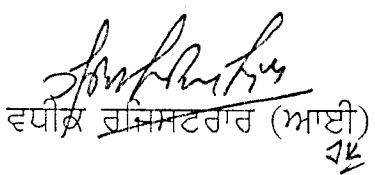 ਵਧੀਕ ਰਜਿਸਟਰਾਰ (ਆਈ)